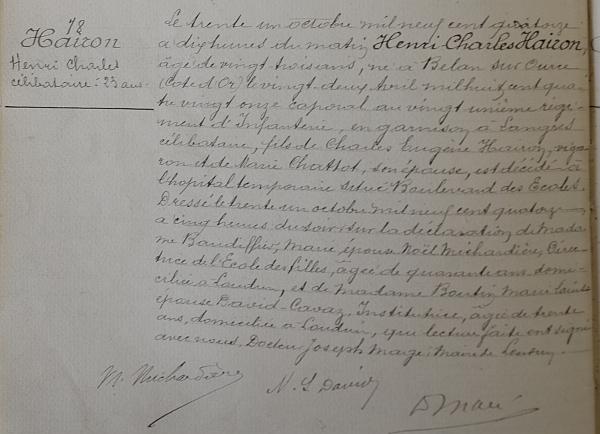 78
Hairon
Henri Charles
célibataire : 23 ans
Le trente un octobre mil neuf cent quatorze
a dix heures du matin, Henri Charles Hairon,
âgé de vingt trois ans, né à Belan sur Ource
(Côte d'Or) le vingt-deux Avril mil huit cent qua-
tre vingt onze caporal au vingt unième régi-
ment d'Infanterie, en garnison à Langres
célibataire, fils de Charles Eugène Hairon, vigne-
ron et de Marie Chattot, son épouse, est décédé à
l'hôpital temporaire situé Boulevard des Ecoles.
Dressé le trente un octobre mil neuf cent quatorze
a cinq heures du soir sur la déclaration de Mada-
me Baudiffier, Marie épouse Noël Michardière, Direc-
trice de l'Ecole des filles, âgée de quarante ans domi-
ciliée à Loudun, et de Madame Boutin Marie
épouse David-Cavaz, Institutrice, âgée de trente
ans, domiciliée à Loudun, qui lecture faite ont signé
avec nous. Docteur Joseph Maire de Loudun.
M. Michardière
N. S. David